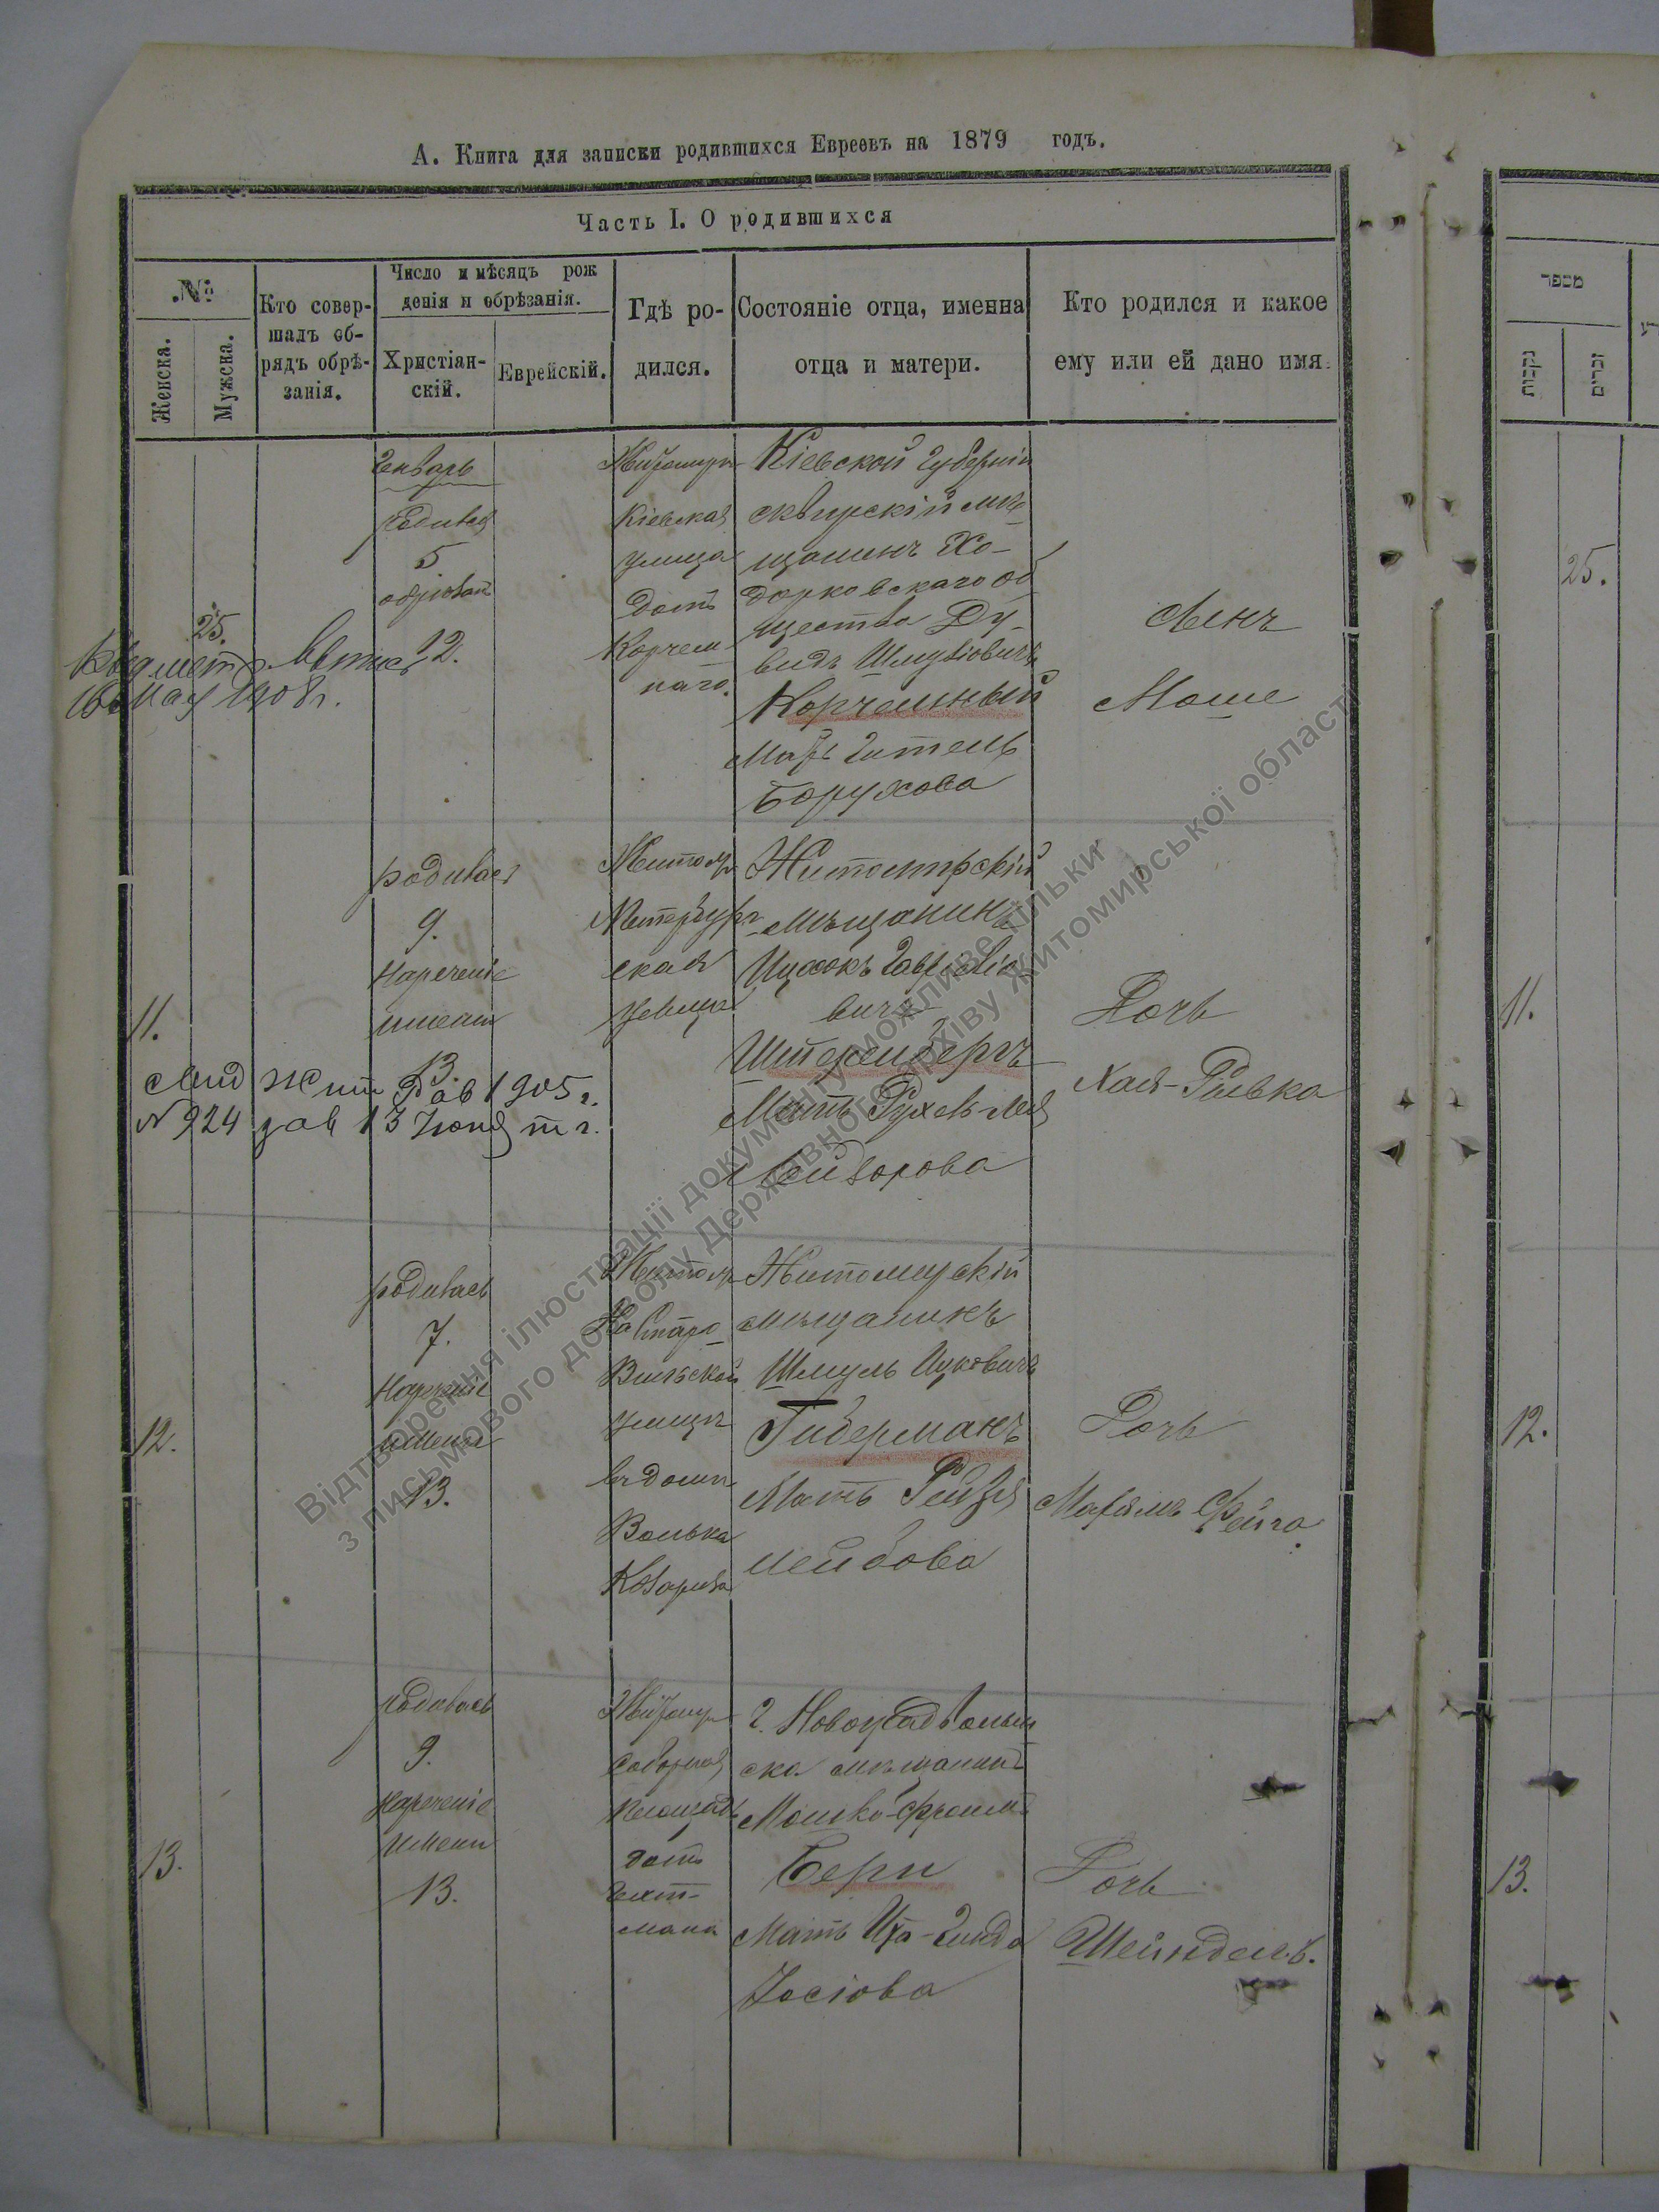 А. Книга для записки родившихся Евреевъ на 1879 годъ.
Часть I. О родившихся
№
Женска.
Мужска.
Кто совер-
шалъ об-
рядъ обрѣ-
занія.
Число и мѣсяцъ рож
денія и обрѣзанія.
Христіан-
скій.
Еврейскій.
Гдѣ ро-
дился.
Состояніе отца, именна
отца и матери.
Кто родился и какое
ему или ей дано имя.
מספר
נקבות
זכרים
25.
16 Мая 1908 г.
Январь
родился
5
12.
Житомиръ
Кіевская
улица
домъ
Корчем-
наго.
Кіевской губерніи
сквирскій мѣ-
щанинъ Хо-
дорковскаго об
щества Ду-
видъ
Корчемный
Мать Гитель
Борухова
Сынъ
Моше
25.
11.
родилась
9.
Нареченіе
имени
13.
1905 г.
№ 924 13 Іюня т г.
Житомр
Петербург
ская
улица
Житомирскій
мѣщанинъ
Ицхокъ
вичъ
Штеренбергъ
Мать Рухль-Лея
Дочь
Хая-Ривка
11.
12.
родилась
7.
Нареченіе
имени
13.
Житомр
На Старо
Вильской
улицѣ
въ домѣ
Волька
Житомирскій
мѣщанинъ
Шмуль Ицковичъ
Гиберманъ
Мать Рейзя
Лейбова
Дочь
Марьямъ Фейга
12.
13.
родилась
9.
Нареченіе
имени
13.
Житомир
Соборная
площадь
домъ
Гехт-
мана
г. Новоградволын
ска мѣщанинъ
Мошко-Фроимъ
Бери
Мать Ита-Гинда
Іосіова
Дочь
Шейндель.
13.
Відтворення ілюстрації документу можливе тільки
з письмового дозволу Державного архіву Житомирської області